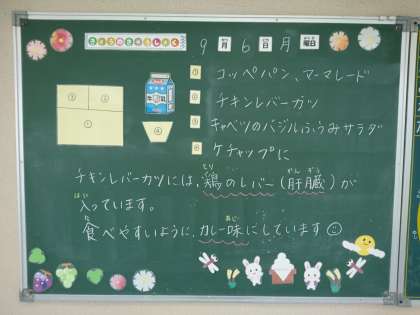 きょうのきゅうしょく
9月6日月曜日
① コッペパン、マーマレード
② チキンレバーカツ
③ キャベツのバジルふうみサラダ
④ ケチャップに
③ ②
①
④
牛乳
チキンレバーカツには、鶏のレバー(肝臓)が
入っています。
食べやすいように、カレー味にしています